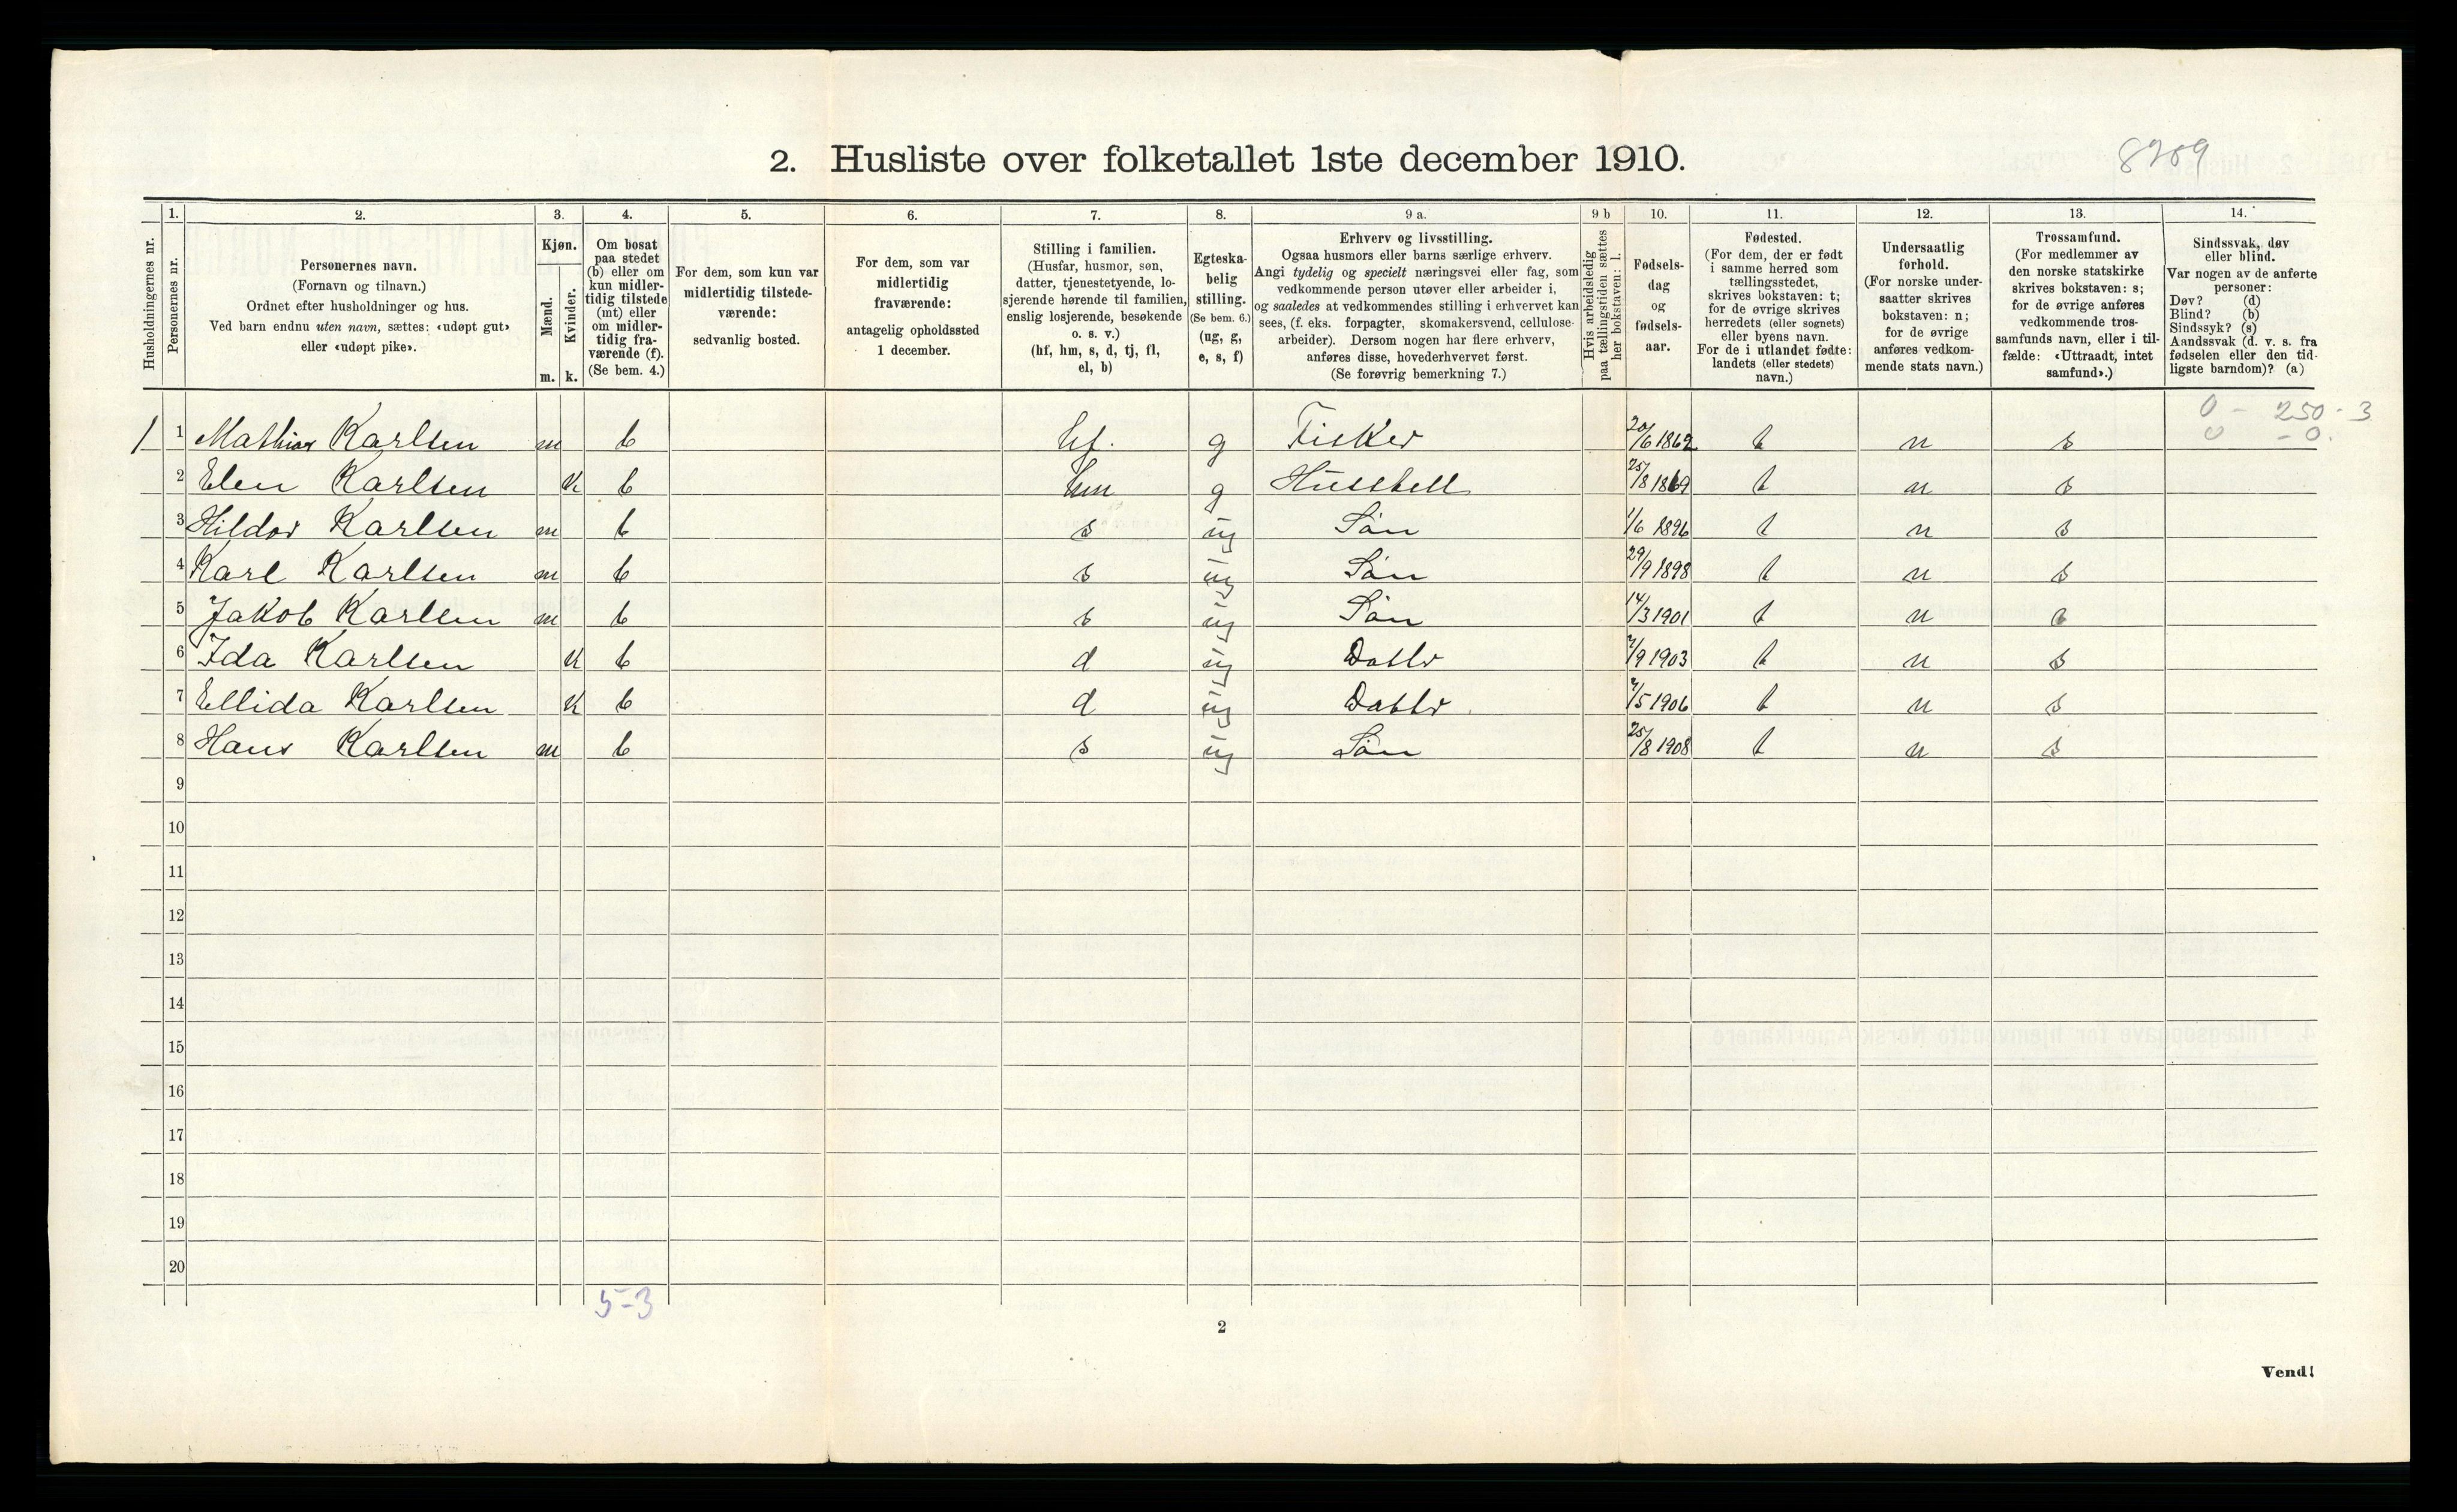 2. Husliste over folketallet 1ste december 1910.
8209
Husholdningernes nr.
1.
Personernes nr.
2.
Personernes navn.
(Fornavn og tilnavn.)
Ordnet efter husholdninger og hus.
Ved barn endnu uten navn, sættes: «udøpt gut»
eller «udøpt pike».
3.
Kjøn.
Mænd.
m.
Kvinder.
k.
4.
Om bosat
paa stedet
(b) eller om
kun midler-
tidig tilstede
(mt) eller
om midler-
tidig fra-
værende (f).
(Se bem. 4.)
5.
For dem, som kun var
midlertidig tilstede-
værende:
sedvanlig bosted.
6.
For dem, som var
midlertidig
fraværende:
antagelig opholdssted
1 december.
7.
Stilling i familien.
(Husfar, husmor, søn,
datter, tjenestetyende, lo-
sjerende hørende til familien,
enslig losjerende, besøkende
o. s. v.)
(hf, hm, s, d, tj, fl,
el, b)
8.
Egteska-
belig
stilling.
(Se bem. 6.)
(ug, g,
e, s, f)
9 a.
Erhverv og livsstilling.
Ogsaa husmors eller barns særlige erhverv.
Angi tydelig og specielt næringsvei eller fag, som
vedkommende person utøver eller arbeider i,
og saaledes at vedkommendes stilling i erhvervet kan
sees, (f. eks. forpagter, skomakersvend, cellulose-
arbeider). Dersom nogen har flere erhverv,
anføres disse, hovederhvervet først.
(Se forøvrig bemerkning 7.)
9 b
Hvis arbeidsledig
paa tællingstiden sættes
her bokstaven: l.
10.
Fødsels-
dag
og
fødsels-
aar.
11.
Fødested.
(For dem, der er født
i samme herred som
tællingsstedet,
skrives bokstaven: t;
for de øvrige skrives
herredets (eller sognets)
eller byens navn.
For de i utlandet fødte:
landets (eller stedets)
navn.)
12.
Undersaatlig
forhold.
(For norske under-
saatter skrives
bokstaven: n;
for de øvrige
anføres vedkom-
mende stats navn.)
13.
Trossamfund.
(For medlemmer av
den norske statskirke
skrives bokstaven: s;
for de øvrige anføres
vedkommende tros-
samfunds navn, eller i til-
fælde: «Uttraadt, intet
samfund».)
14.
Sindssvak, døv
eller blind.
Var nogen av de anførte
personer:
Døv? (d)
Blind? (b)
Sindssyk? (s)
Aandssvak (d. v. s. fra
fødselen eller den tid-
ligste barndom)? (a)
0 - 250 - 3
0 - 0.
1 1 Mathias Karlsen m b hf. g Fisker 20/6 1862 t n s
2 Elen Karlsen k b hm g Husstell 25/8 1869 t n s
3 Hildor Karlsen m b s ug Søn 1/6 1896 t n s
4 Karl Karlsen m b s ug Søn 29/9 1898 t n s
5 Jakob Karlsen m b s ug Søn 14/3 1901 t n s
6 Ida Karlsen k b d ug Datter 7/9 1903 t n s
7 Ellida Karlsen k b d ug Datter 4/5 1906 t n s
8 Hans Karlsen m b s ug Søn 25/8 1908 t n s
9
10
11
12
13
14
15
16
17
18
19
20
5-3
2
Vend!